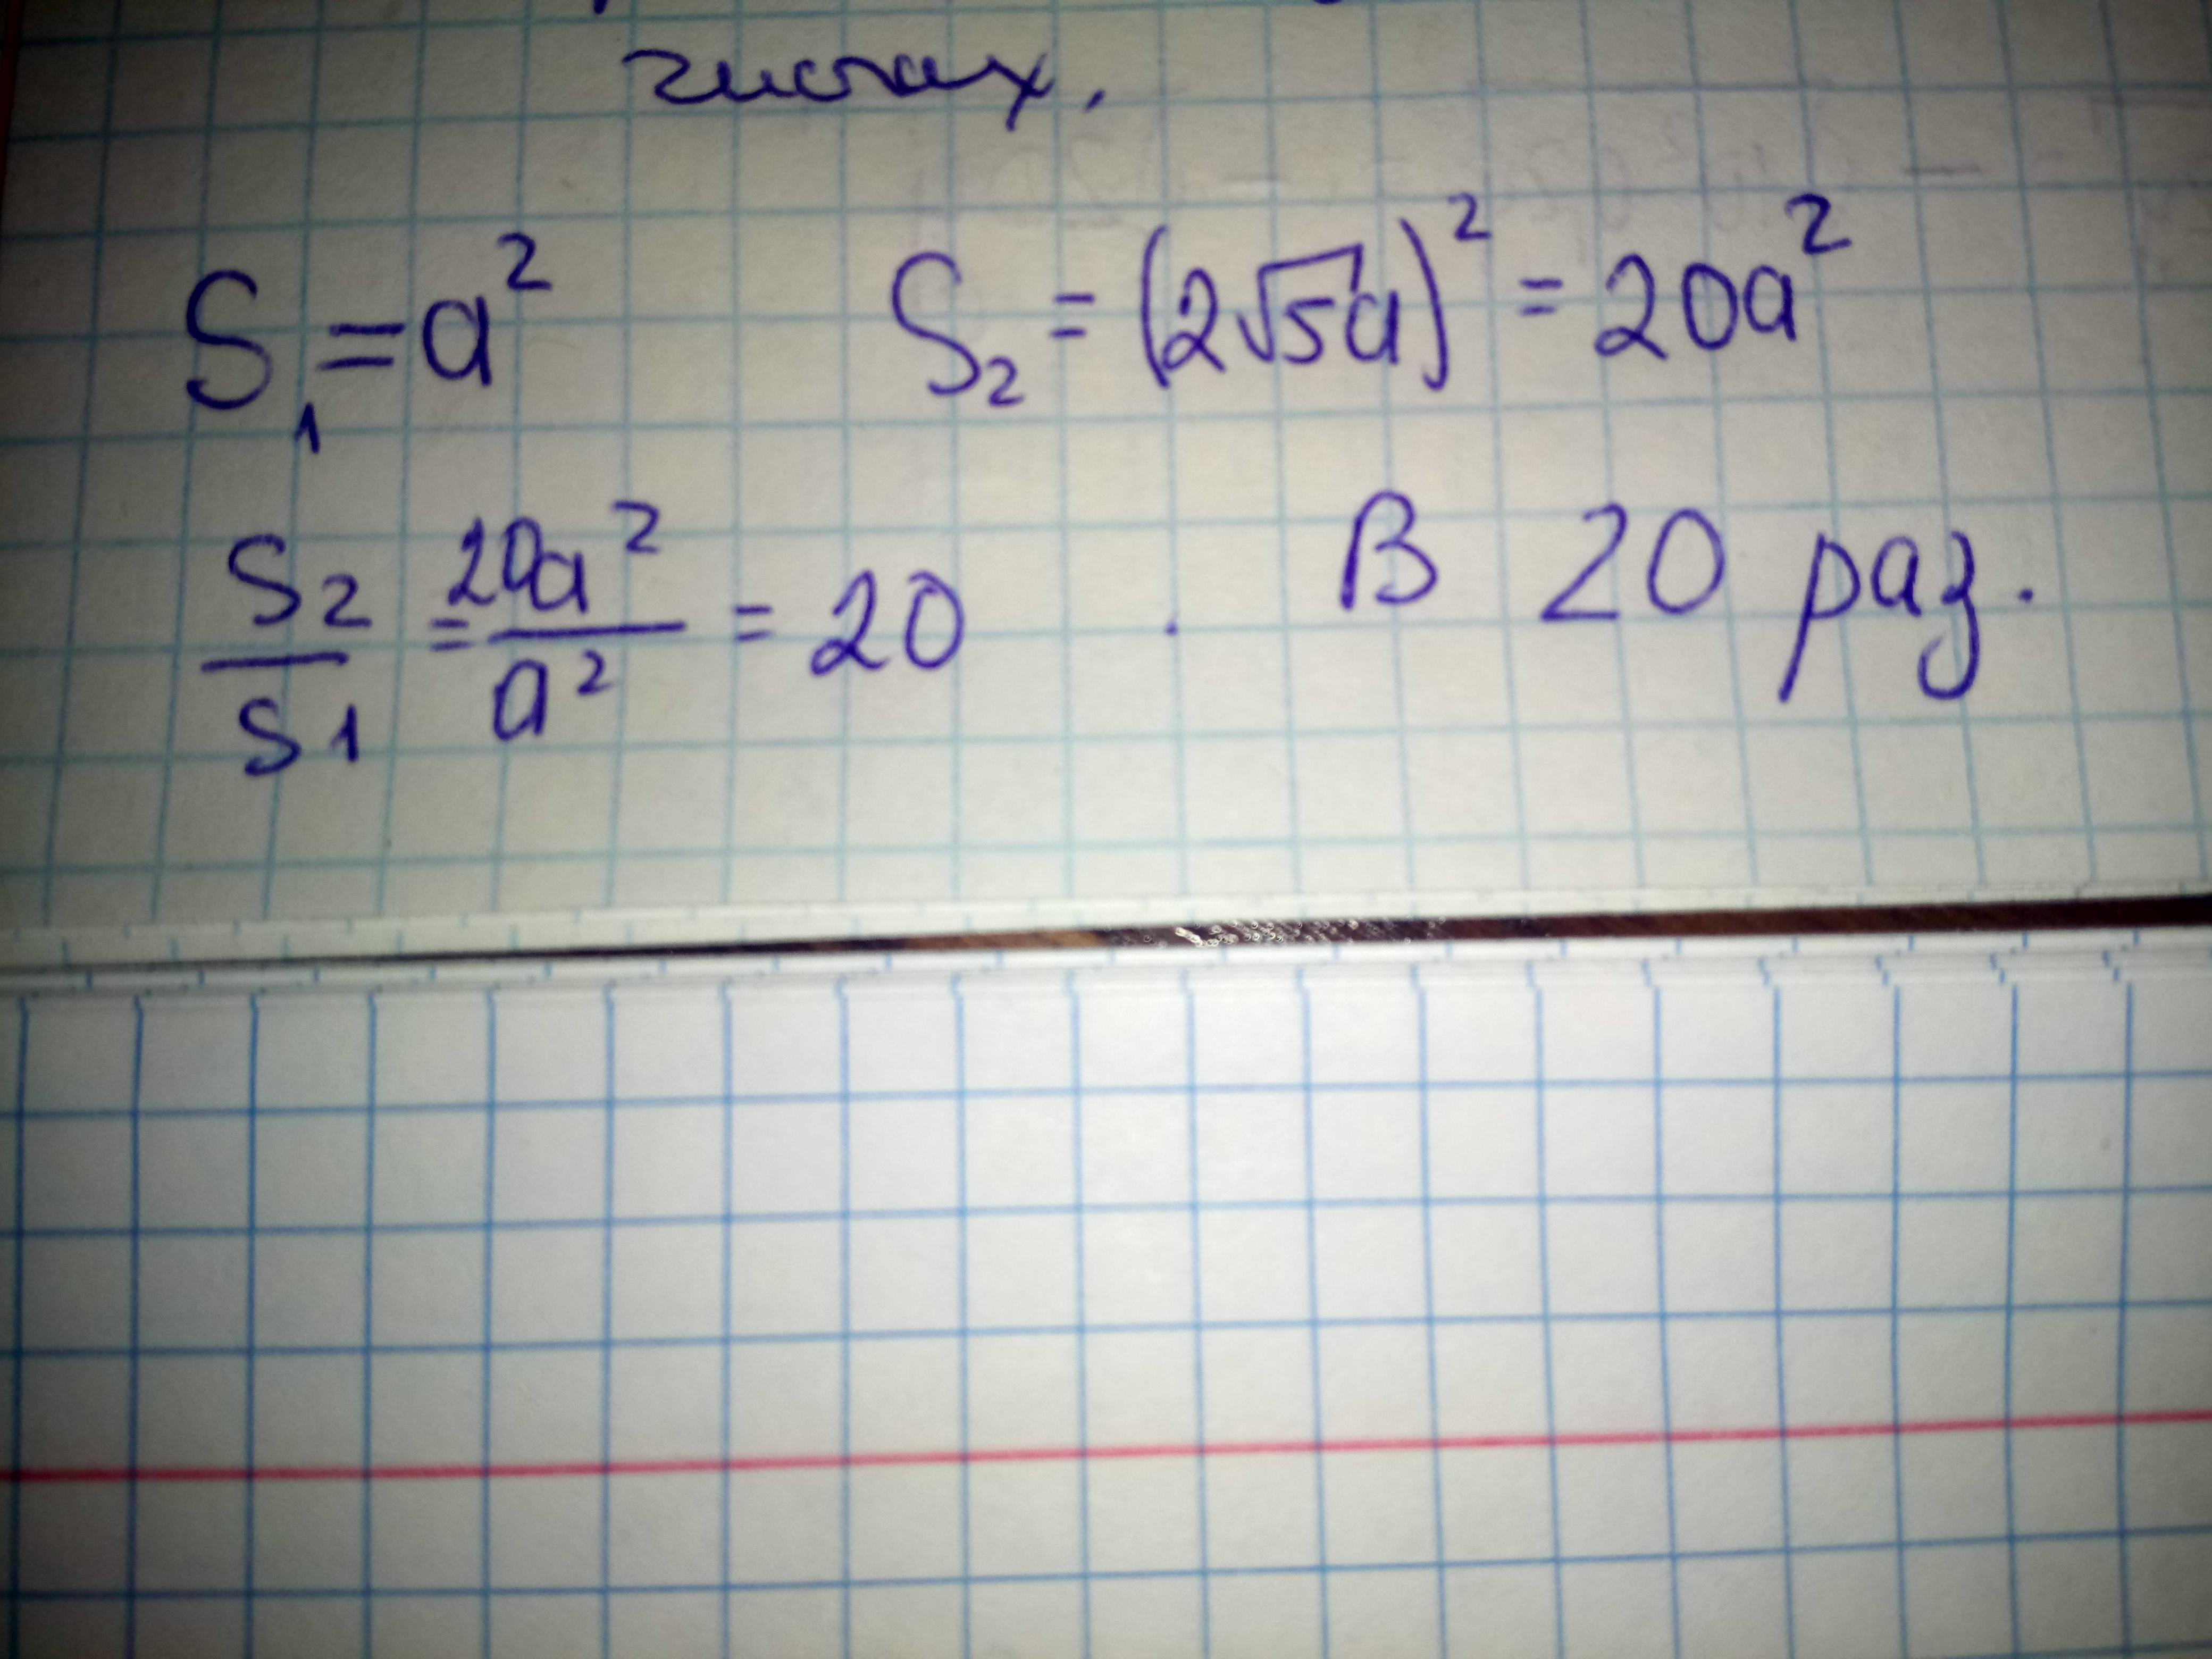 числах.
S₁ = a² S₂ = (2√5a)² = 20a²
S₂/S₁ = 20a²/a² = 20 . В 20 раз.